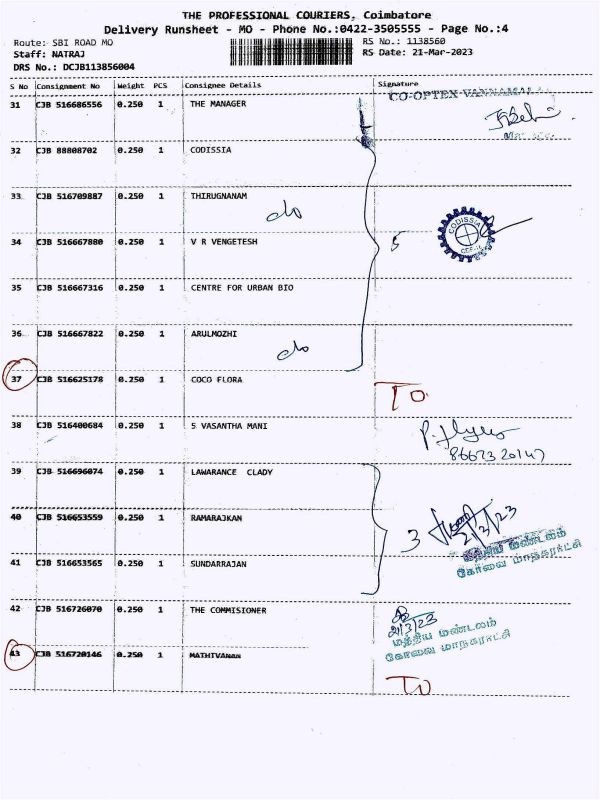 THE PROFESSIONAL COURIERS, Coimbatore
Delivery Runsheet - MO - Phone No.:0422-3505555 - Page No.:4
Route: SBI ROAD MO
RS No.: 1138560
Staff: NATRAJ
RS Date: 21-Mar-2023
DRS No.: DCJB113856004
S No Consignment No Weight PCS Consignee Details Signature
31 CJB 516686556 0.250 1 THE MANAGER
CO-OPTEX
32 CJB 88808702 0.250 1 CODISSIA
33 CJB 516709887 0.250 1 THIRUGNANAM
do
34 CJB 516667880 0.250 1 V R VENGETESH
5
CODISSIA
35 CJB 516667316 0.250 1 CENTRE FOR URBAN BIO
36 CJB 516667822 0.250 1 ARULMOZHI
do
37 CJB 516625178 0.250 1 COCO FLORA
TO
38 CJB 516400684 0.250 1 S VASANTHA MANI
39 CJB 516696074 0.250 1 LAWARANCE CLADY
40 CJB 516653559 0.250 1 RAMARAJKAN
3
21/3/23
மத்திய மண்டலம்
கோவை மாநகராட்சி
41 CJB 516653565 0.250 1 SUNDARRAJAN
42 CJB 516726070 0.250 1 THE COMMISIONER
21/3/23
மத்திய மண்டலம்
கோவை மாநகராட்சி
43 CJB 516720146 0.250 1 MATHIVANAN
TO